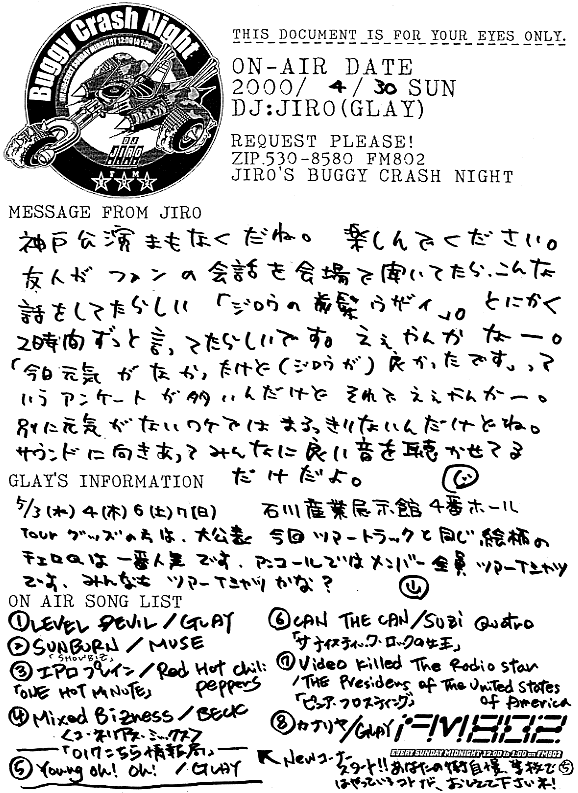 Buggy Crash Night
THIS DOCUMENT IS FOR YOUR EYES ONLY.
ON-AIR DATE
2000/ 4/30 SUN
DJ:JIRO(GLAY)
REQUEST PLEASE!
ZIP.530-8580 FM802
JIRO'S BUGGY CRASH NIGHT
DJ
JIRO
F M
MESSAGE FROM JIRO
神戸公演まもなくだね。 楽しんでください。
友人がファンの会話を会場で聞いてたら、こんな
話をしてたらしい「ジロウの前髪ウザイ」。とにかく
2時間ずっと言ってたらしいです。ええやんかなー。
「今日元気がなかったけど(ジロウが)良かったです。」って
いうアンケートが多いんだけど それでええやんかー。
別に元気がないワケではまるっきりないんだけどね。
サウンドに向きあってみんなに良い音を聴かせてる
だけだよ。 ジ
GLAY'S INFORMATION
5/3(水)4(木)6(土)7(日) 石川産業展示館4番ホール
Tourグッズの方は、大公表 今回ツアートラックと同じ絵柄の
チョロQは一番人気です。アンコールではメンバー全員ツアーTシャツ
です。みんなも ツアーTシャツかな?
ON AIR SONG LIST
①LEVEL DEVIL/GLAY
②SUNBURN/MUSE
「SHOWBIZ」
③エアロプレイン/Red Hot Chili Peppers
「ONE HOT MINUTE」
④Mixed Bizness/BECK
<コーネリアス・ミックス>
「017こちら情報局」
⑤Young oh! oh! /GLAY
⑥CAN THE CAN/SUZI Quatro
「サディスティック・ロックの女王」
⑦Video Killed The Radio Star
/THE Presidens of The United States
of America
「ピュア・フロスティング」
⑧カナリヤ/GLAY
FM802
EVERY SUNDAY MIDNIGHT 12:00 to 1:00 on FM802
Newコーナー
スタート!!あなたの街自慢、学校で
はやっているコトなど、おしえて下さいネ!